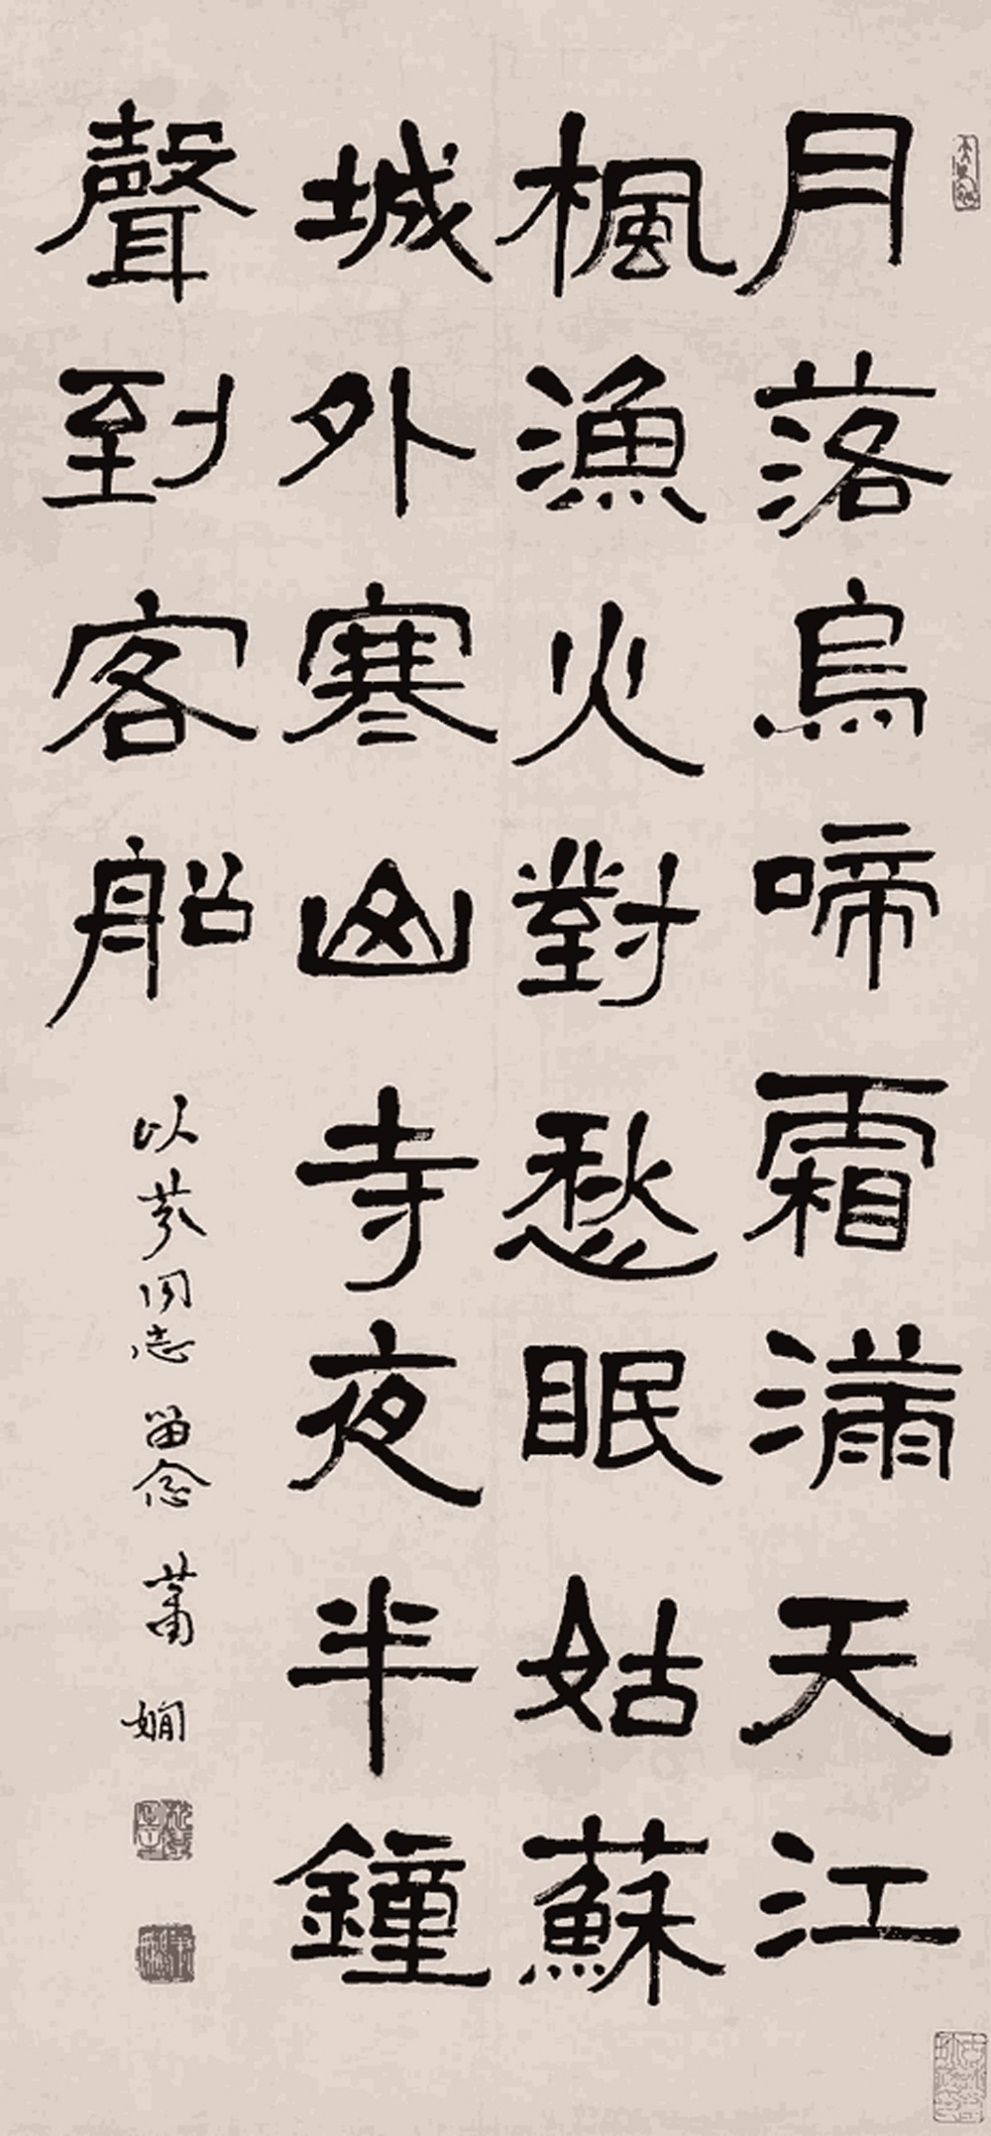 月落烏啼霜滿天江
楓漁火對愁眠姑蘇
城外寒山寺夜半鐘
聲到客船
以芬同志留念 蕭嫻